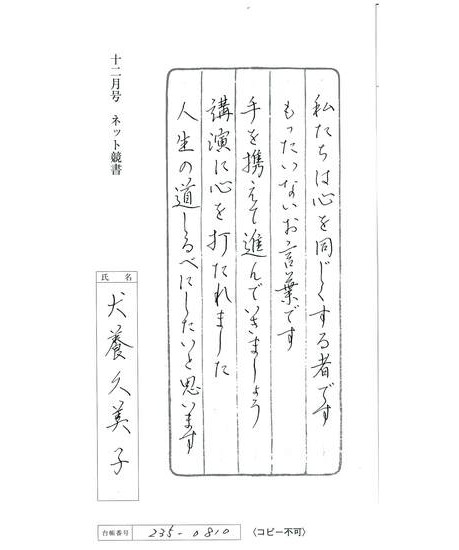 私たちは心を同じくする者です
もったいないお言葉です
手を携えて進んでいきましょう
講演に心を打たれました
人生の道しるべにしたいと思います
十二月号 ネット競書
氏名
犬養久美子
台帳番号 235-0810 〈コピー不可〉